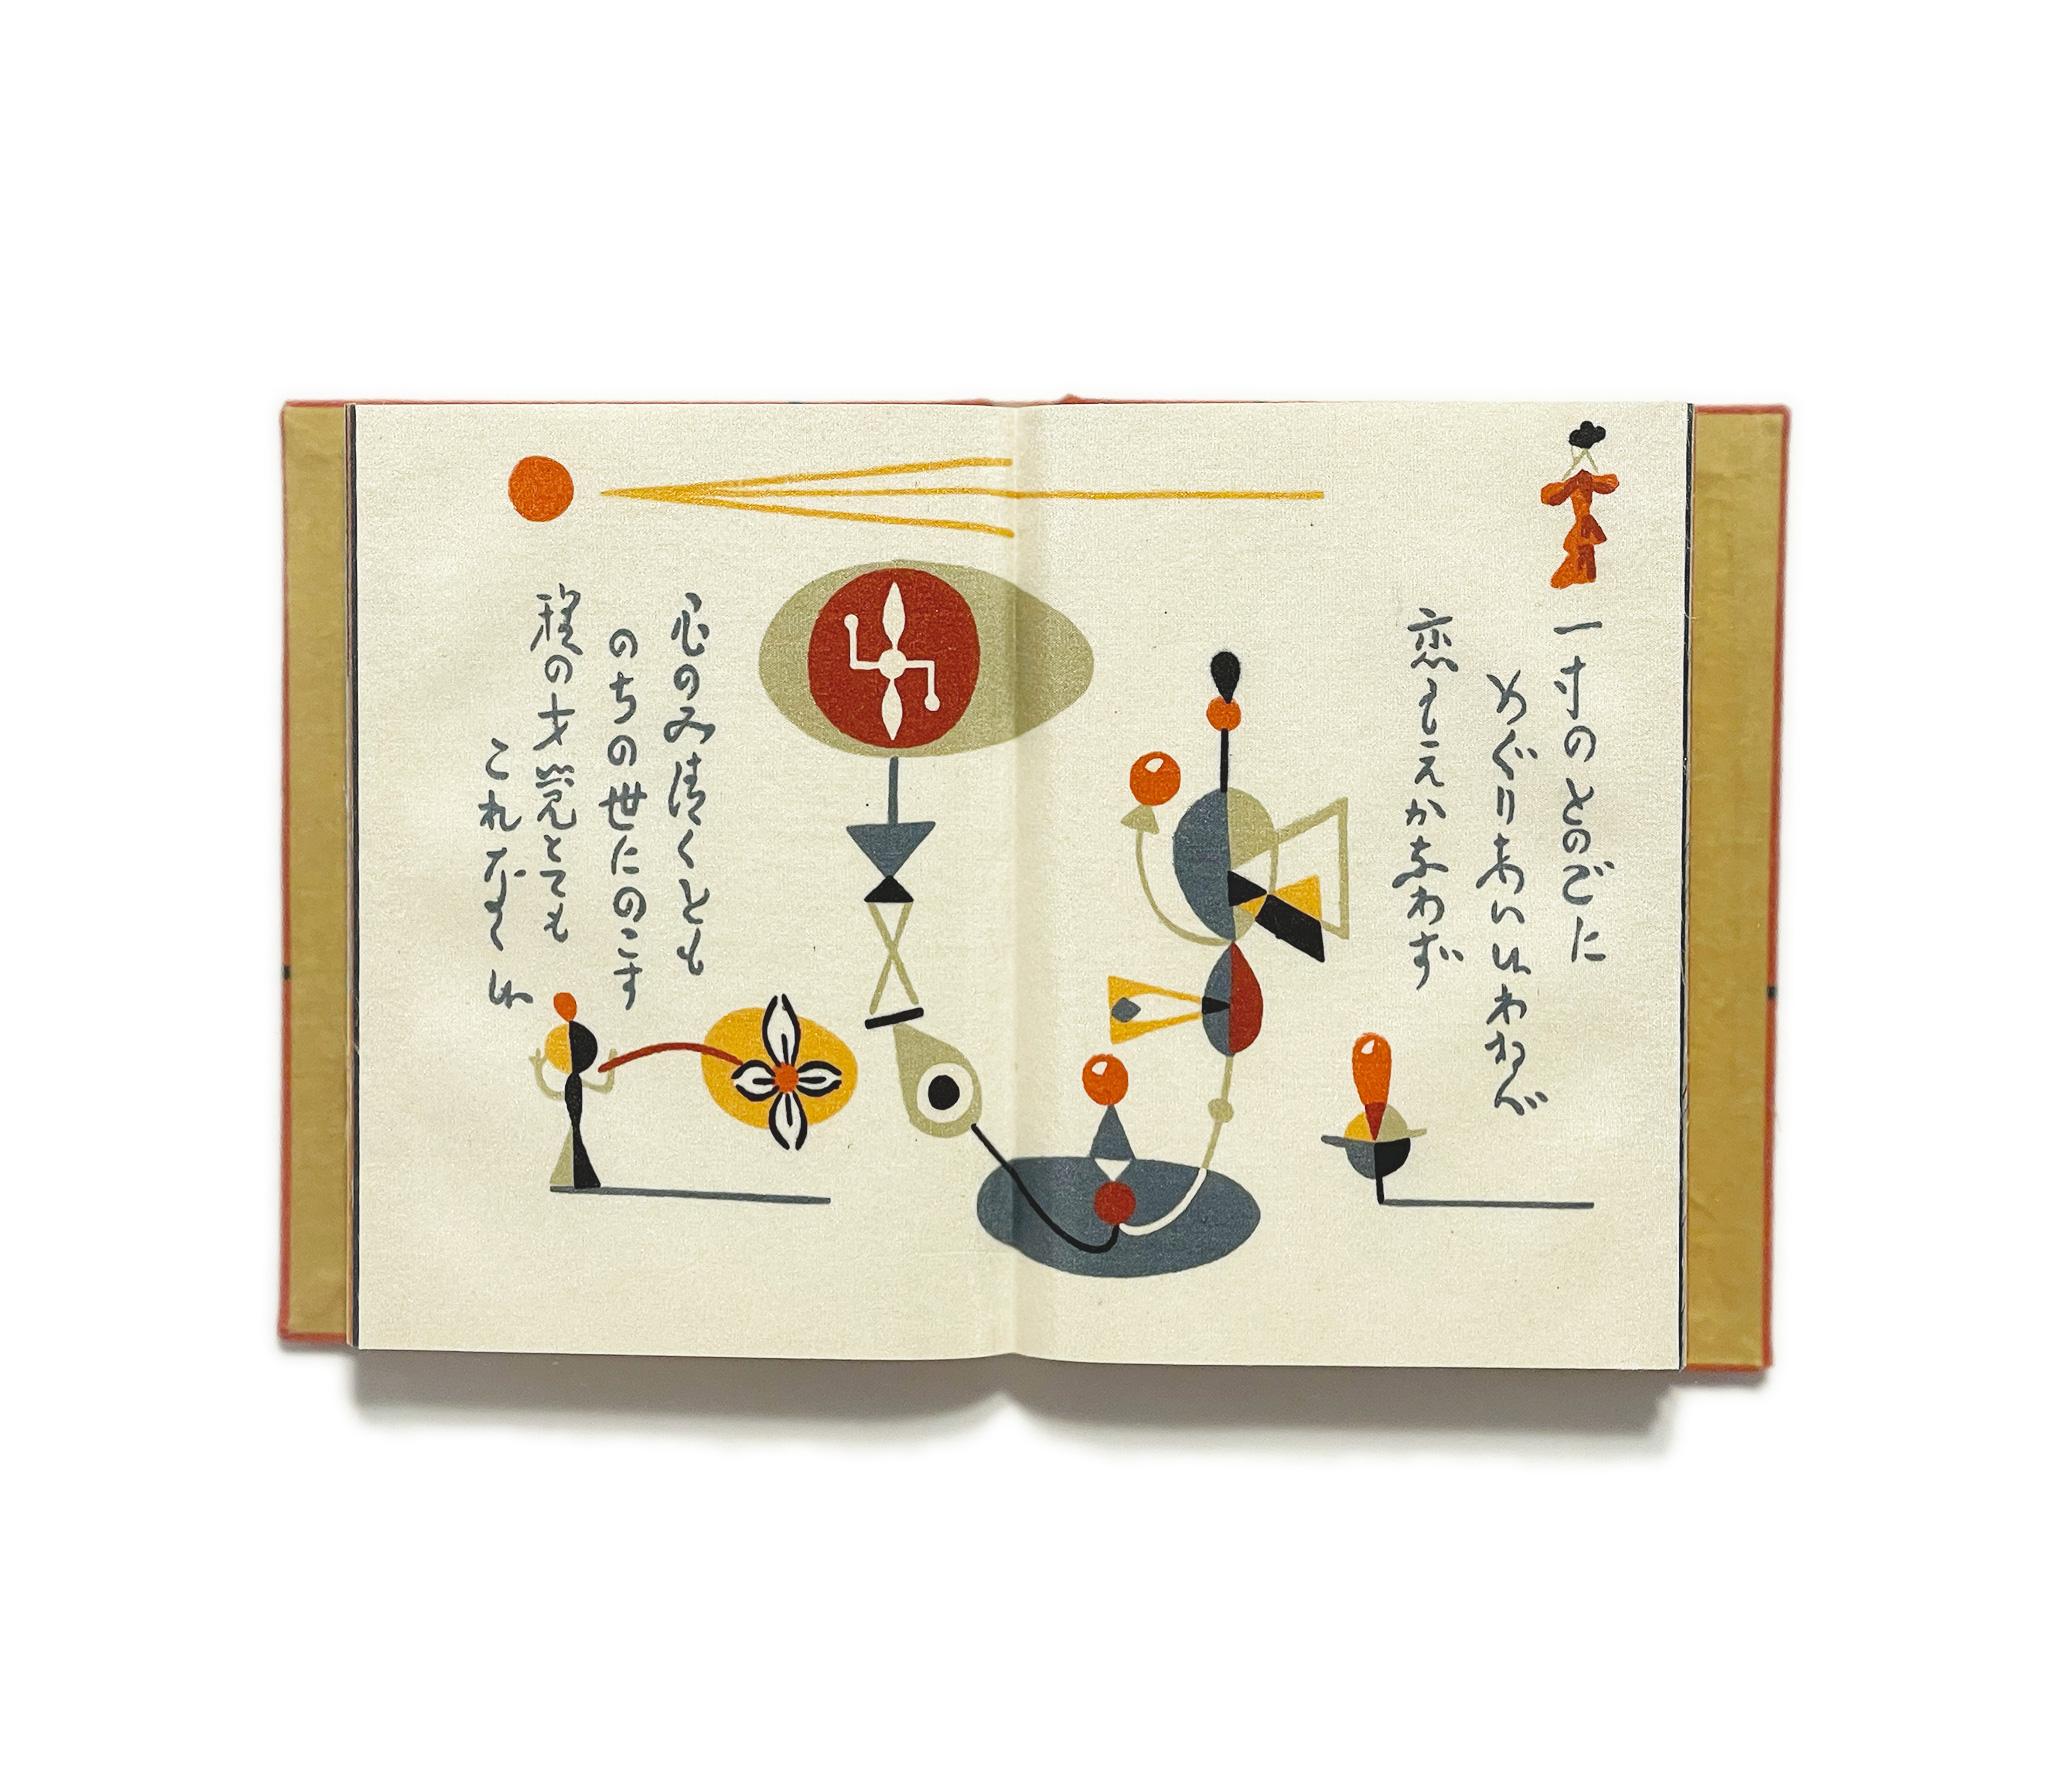 一寸のとのごに
めぐりあい候わねば
恋もえかなわず
心のみ清くとも
のちの世にのこす
程の才覚とても
これなく候